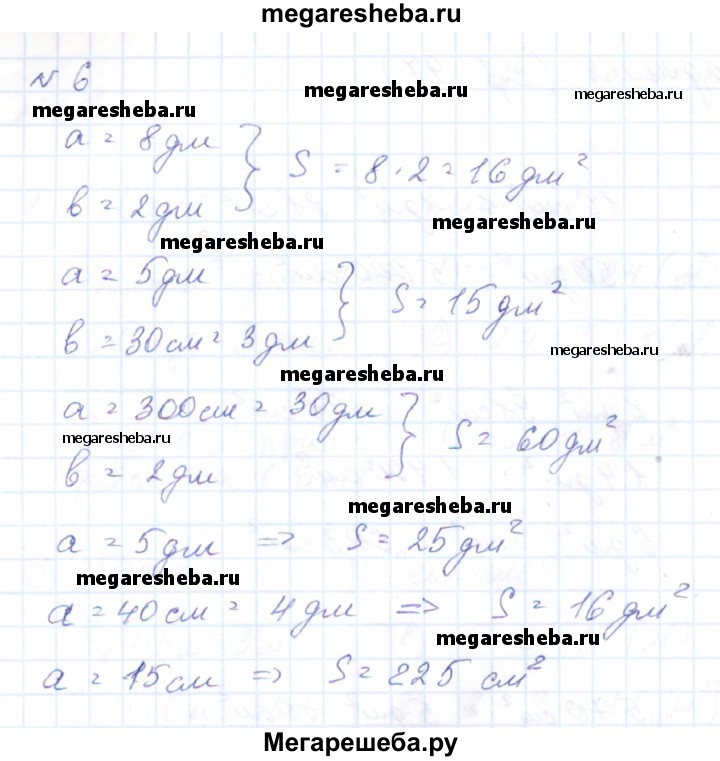 megaresheba.ru
№ 6
megaresheba.ru megaresheba.ru megaresheba.ru
a = 8 дм
в = 2 дм } S = 8 · 2 = 16 дм²
megaresheba.ru megaresheba.ru
a = 5 дм
в = 30 см = 3 дм } S = 15 дм²
megaresheba.ru megaresheba.ru
a = 300 см = 30 дм
megaresheba.ru
в = 2 дм } S = 60 дм²
megaresheba.ru
a = 5 дм => S = 25 дм²
megaresheba.ru
a = 40 см = 4 дм => S = 16 дм²
megaresheba.ru
a = 15 см => S = 225 см²
Мегарешеба.ру